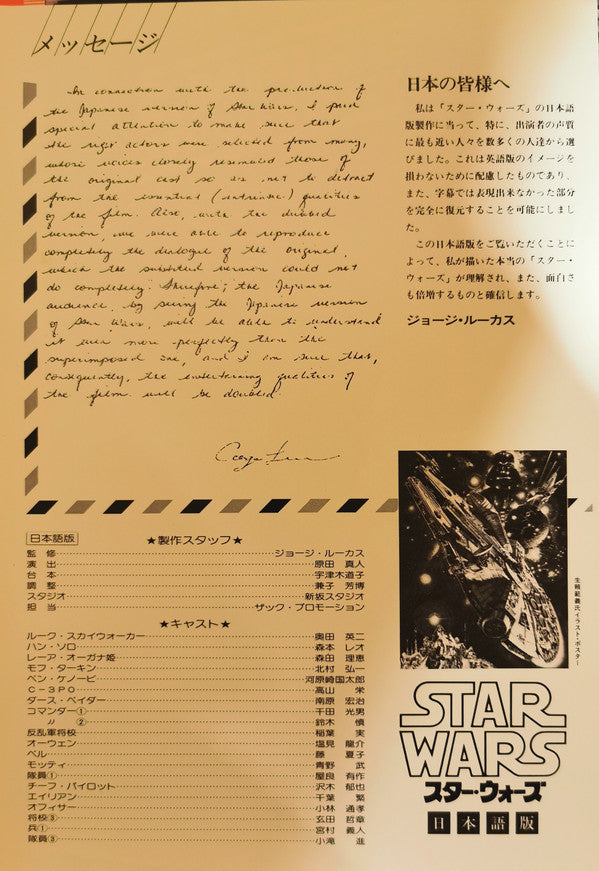 メッセージ
In connection with the production of
the Japanese version of Star Wars, I paid
special attention to make sure that
the right actors were selected from many,
whose voices closely resembled those of
the original cast so as not to detract
from the essential (intrinsic) qualities
of the film. Also, with the dubbed
version, we were able to reproduce
completely the dialogue of the original,
which the subtitled version could not
do completely. Therefore; the Japanese
audience by seeing the Japanese version
of Star Wars, will be able to understand
it even more perfectly than the
superimposed one, and I am sure that,
consequently, the entertaining qualities of
the film will be doubled.
日本の皆様へ
私は「スター・ウォーズ」の日本語
版製作に当って、特に、出演者の声質
に最も近い人々を数多くの人達から選
びました。これは英語版のイメージを
損わないために配慮したものであり、
また、字幕では表現出来なかった部分
を完全に復元することを可能にしまし
た。
この日本語版をご覧いただくことに
よって、私が描いた本当の「スター・
ウォーズ」が理解され、また、面白さ
も倍増するものと確信します。
ジョージ・ルーカス
日本語版
★製作スタッフ★
監修 ジョージ・ルーカス
演出 原田 真人
台本 宇津木道子
調整 兼子 芳博
スタジオ 新坂スタジオ
担当 ザック・プロモーション
★キャスト★
ルーク・スカイウォーカー 奥田 英二
ハン・ソロ 森本 レオ
レーア・オーガナ姫 森田 理恵
モフ・ターキン 北村 弘一
ベン・ケノービ 河原崎国太郎
C-3PO 高山 栄
ダース・ベイダー 南原 宏治
コマンダー① 千田 光男
〃 ② 鈴木 慎
反乱軍将校 稲葉 実
オーウェン 塩見 龍介
ベル 藤 夏子
モッティ 青野 武
隊員① 屋良 有作
チーフ・パイロット 沢木 郁也
エイリアン 千葉 繁
オフィサー 小林 通孝
将校③ 玄田 哲章
兵① 宮村 義人
隊員③ 小滝 進
生頼範義氏イラスト・ポスター
STAR
WARS
スター・ウォーズ
日本語版